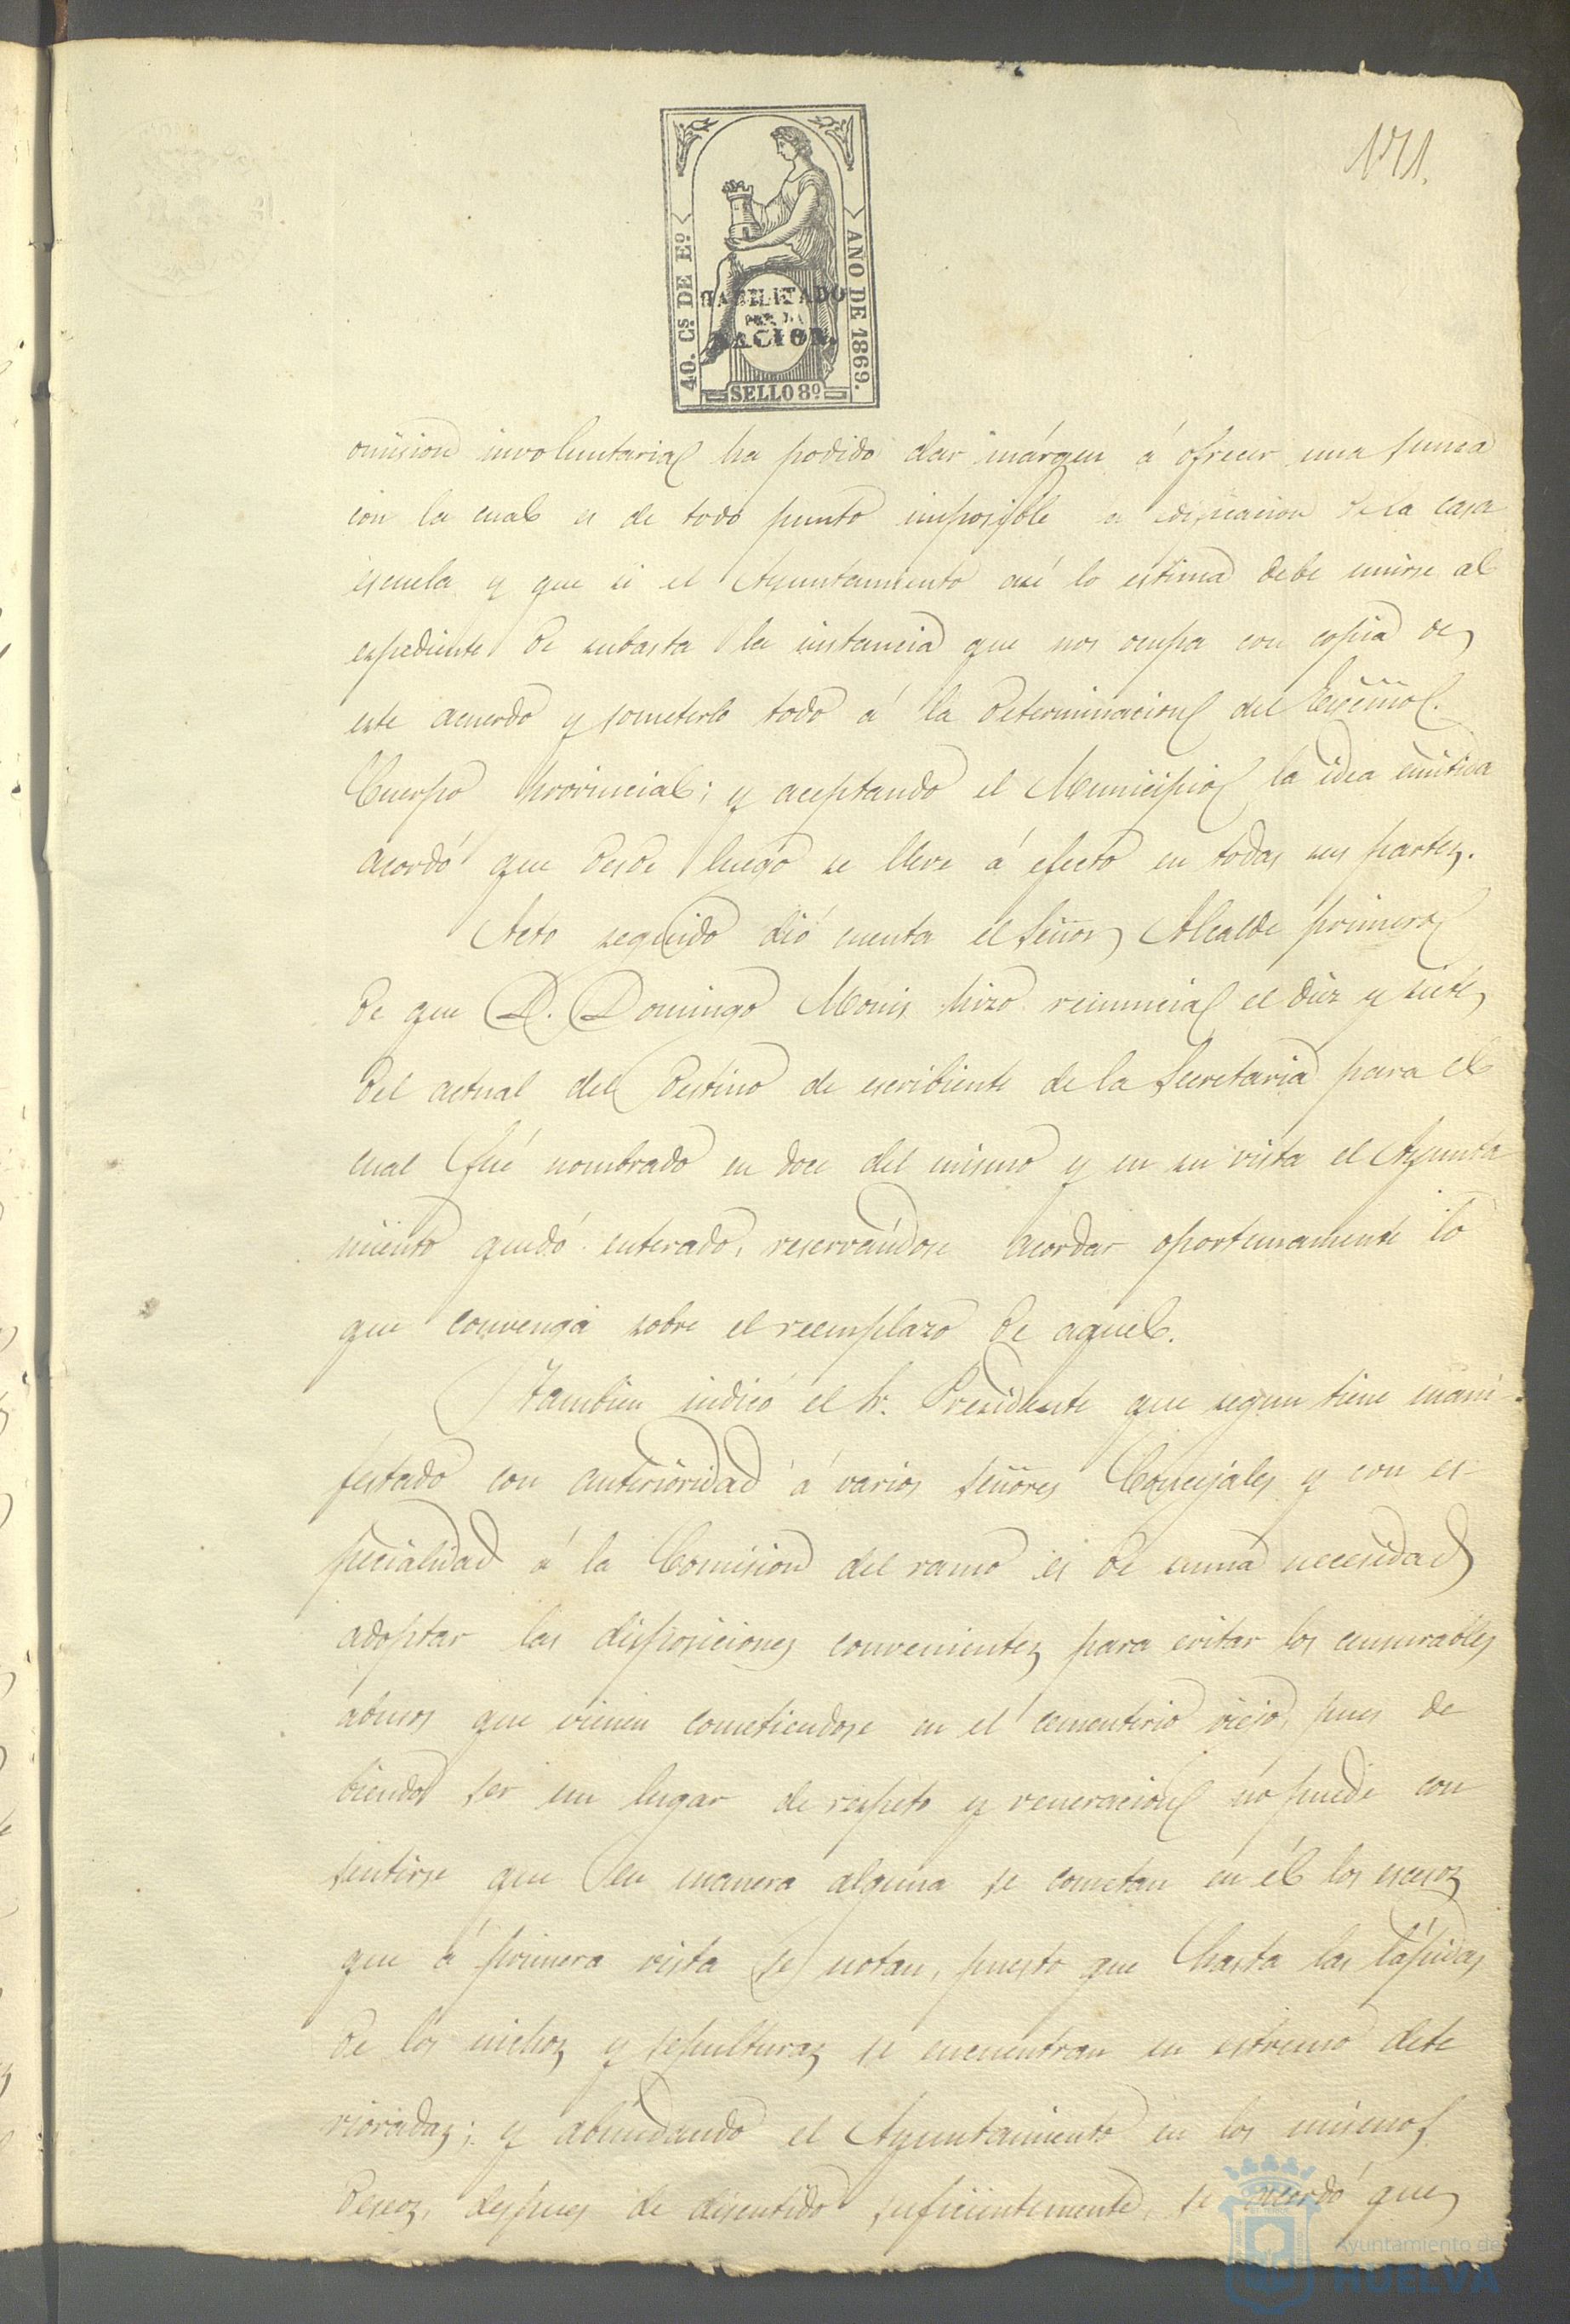 171.
40. Cs. DE Eº
AÑO DE 1869.
HABILITADO
POR LA
NACION.
SELLO 8º
omision involuntaria ha podido dar márgen á ofrecer una suma
con la cual es de todo punto imposible la edificacion de la casa
escuela y que si el Ayuntamiento asi lo estima debe unirse al
espediente de subasta la instancia que nos ocupa con copia de
este acuerdo y someterlo todo á la determinacion del Escmo.
Cuerpo provincial; y aceptando el Municipio la idea emitida
acordó que desde luego se lleve á efecto en todas sus partes.
Acto seguido dió cuenta el Señor Alcalde primero
de que D. Domingo Monis hizo renuncia el diez y siete
del actual del destino de escribiente de la Secretaria para el
cual fué nombrado en doce del mismo y en su vista el Ayunta
miento quedó enterado, reservándose acordar oportunamente lo
que convenga sobre el reemplazo de aquel.
Tambien indicó el Sr. Presidente que segun tiene mani-
festado con anterioridad á varios Señores Concejales y con es-
pecialidad á la Comision del ramo es de suma necesidad
adoptar las disposiciones convenientes para evitar los censurables
abusos que vienen cometiendose en el cementerio viejo, pues de
biendo ser un lugar de respeto y veneracion no puede con
sentirse que en manera alguna se cometan en él los escesos
que á primera vista se notan, puesto que hasta las lápidas
de los nichos y sepulturas se encuentran en estremo dete
rioradas; y abundando el Ayuntamiento en los mismos
deseos, despues de discutido suficientemente, se acordó que
Ayuntamiento de
HUELVA